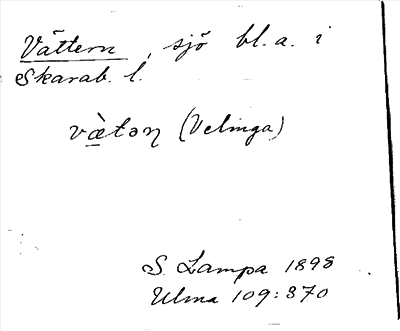 Vättern, sjö bl. a. i
Skarab. l.
vætəɳ (Velinga)
S. Lampa 1898
Ulma 109:370